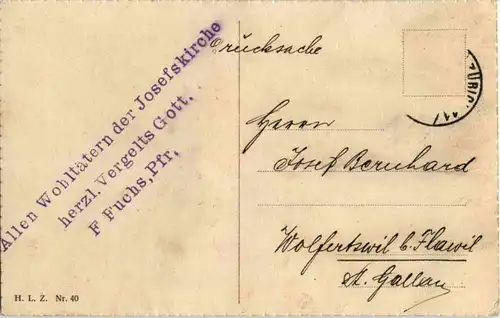 Allen Wohltätern der Josefskirche
herzl. Vergelts Gott.
F Fuchs, Pfr.
H. L. Z. Nr. 40
Drucksache
ZÜRICH 11/
Herrn
Josef Bernhard
Wolfertswil b. Flawil
St. Gallen